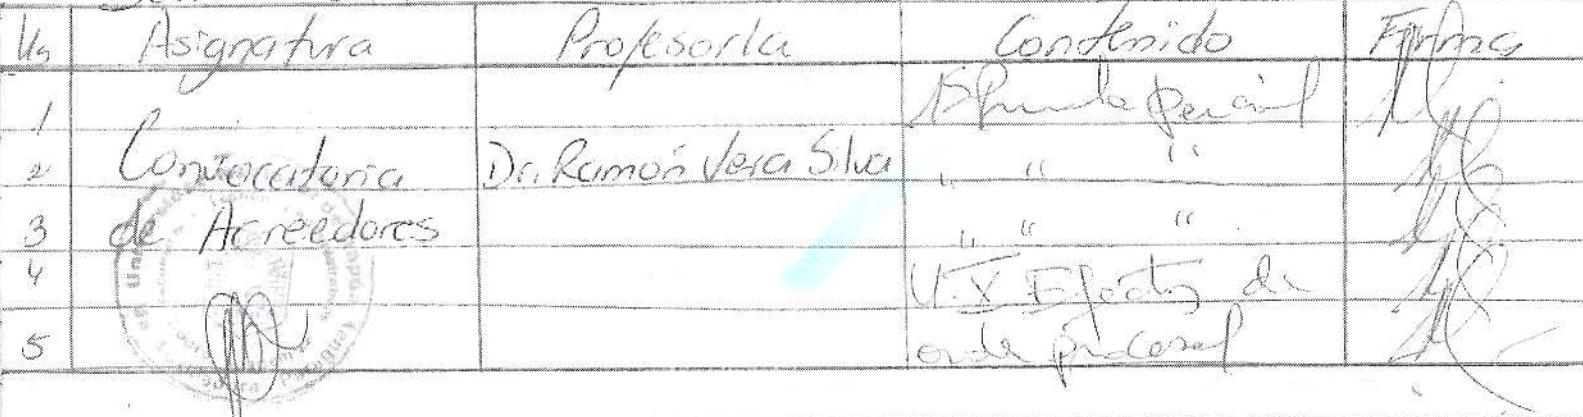 Hs Asignatura Profesor/a Contenido Firma
1 1º Prueba Parcial
2 Convocatoria Dr. Ramón Vera Silva " " "
3 de Acreedores " " "
4 U.X Efectos de
5 orde procesal